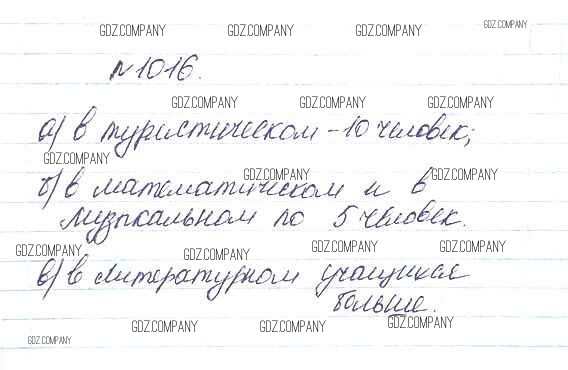 GDZ.COMPANY GDZ.COMPANY GDZ.COMPANY GDZ.COMPANY
№1016.
GDZ.COMPANY GDZ.COMPANY GDZ.COMPANY
а) в туристическом - 10 человек;
GDZ.COMPANY
GDZ.COMPANY GDZ.COMPANY
б) в математическом и в
музыкальном по 5 человек.
GDZ.COMPANY GDZ.COMPANY GDZ.COMPANY GDZ.COMPANY
в) в литературном учащихся
больше.
GDZ.COMPANY GDZ.COMPANY GDZ.COMPANY
GDZ.COMPANY